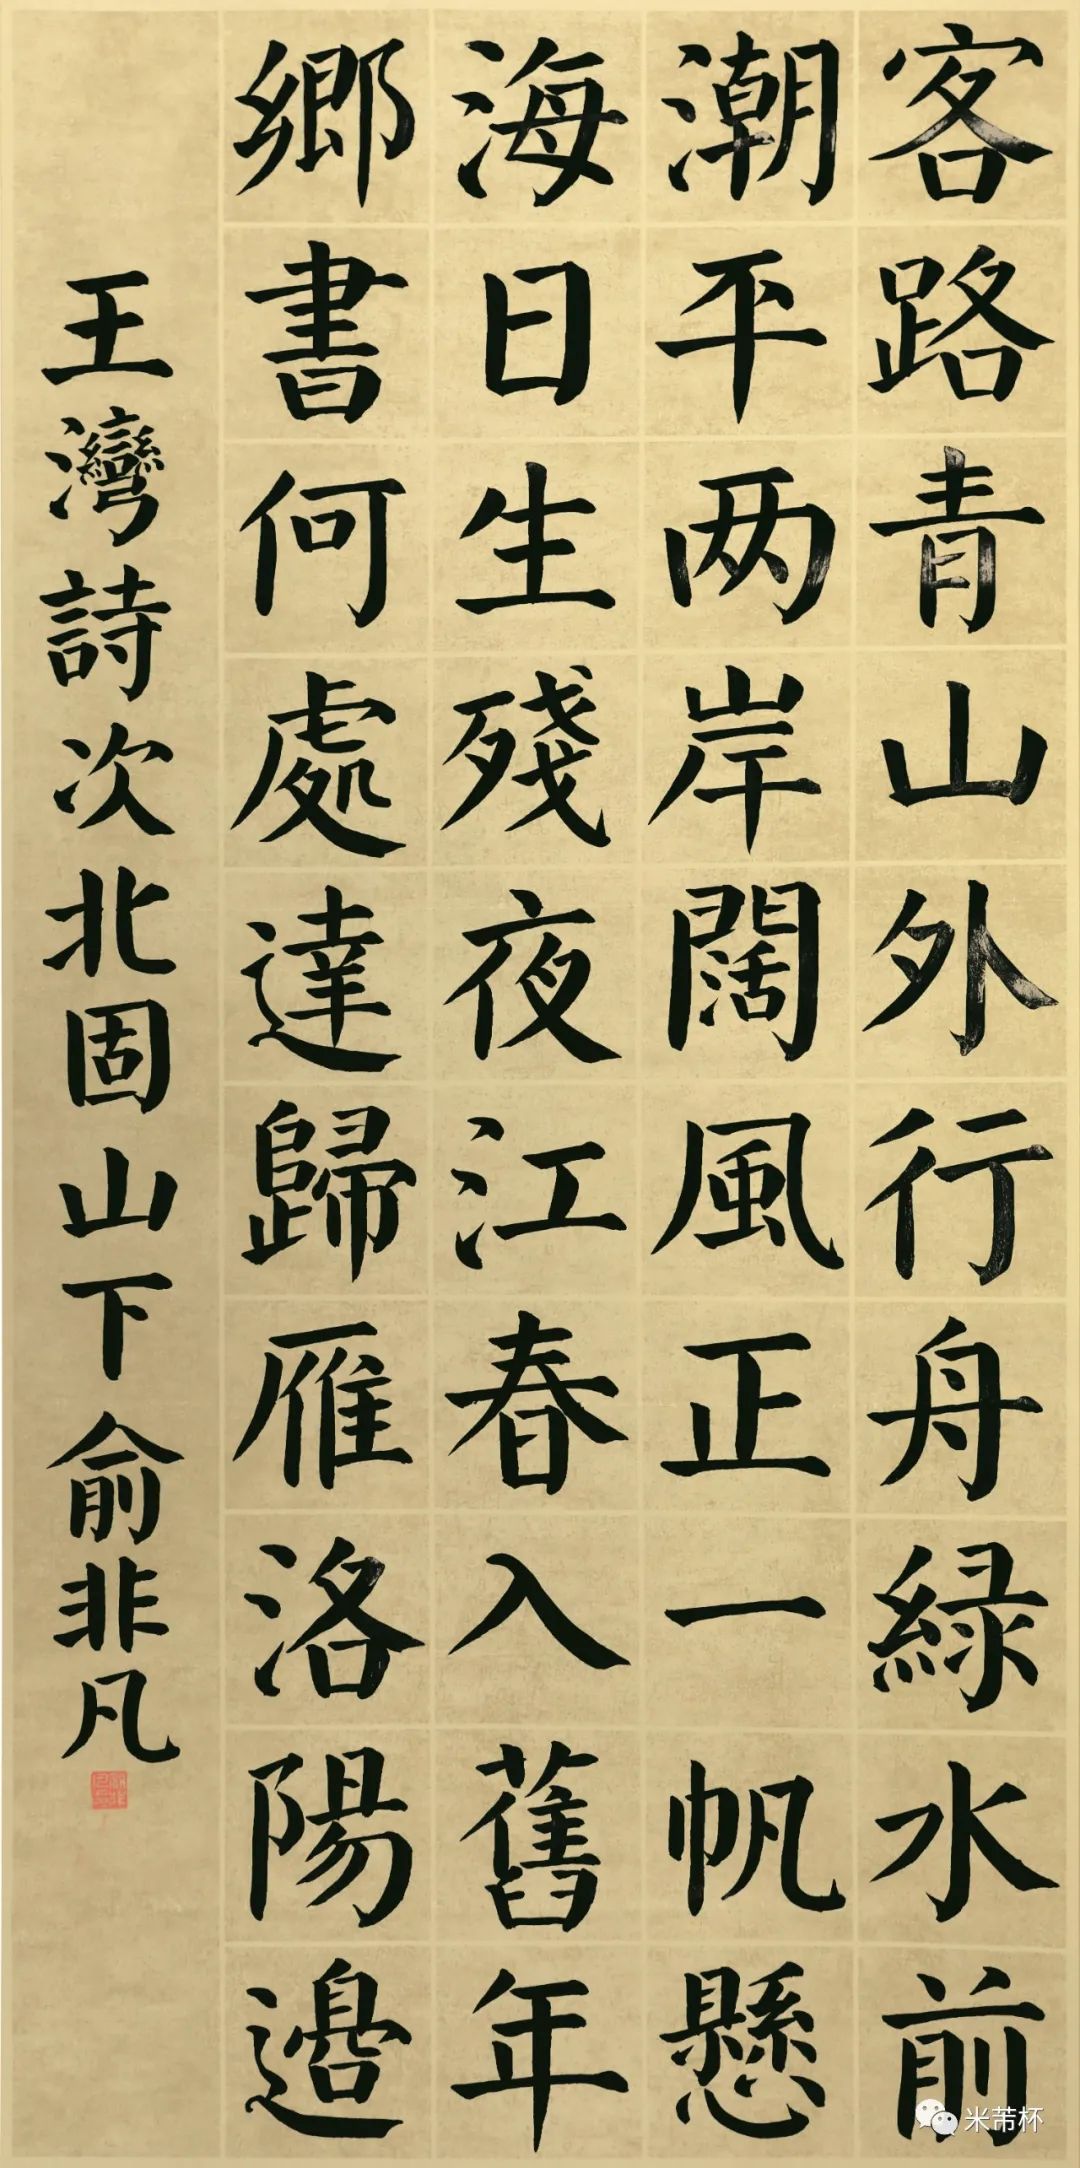 客路青山外行舟緑水前
潮平两岸闊風正一帆懸
海日生殘夜江春入舊年
鄉書何處達歸雁洛陽邊
王灣詩次北固山下俞非凡
米芾杯